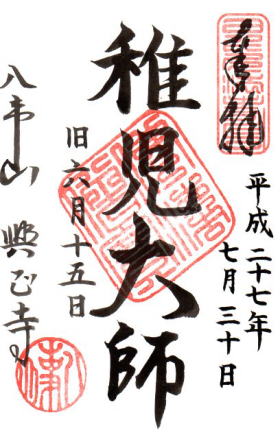 奉拝
平成二十七年
七月三十日
稚児大師
旧六月十五日
八事山 興正寺